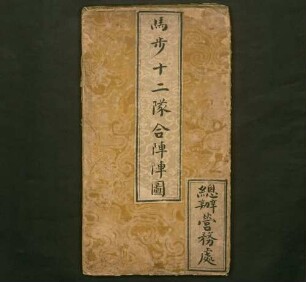 馬步十二隊合陣陣圖
總辦營務處